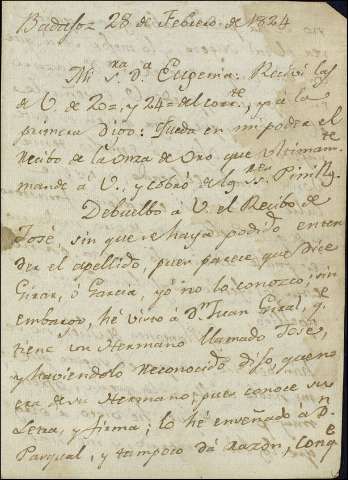 Badajoz 28 de Febrero de 1824
Mi s.ra D.a Eugenia. Recivi las
de V. de 20=, y 24= del corr.te, y a la
primera Digo: Queda en mi poder el
Recibo de la onza de oro que ultimam.te
mande à V., y cobró de los SS.res Pinillos.
Debuelbo à V. el Recibo de
José, sin que se haya podido enten
der el apellido, pues parece que Dice
Girar, ó Garcia, yo no lo conozco, sin
embargo, hé visto à D.n Juan Giral, q.e
tiene un Hermano llamado José,
y haviendolo reconocido Dijo, que no
era de su Hermano, pues conoce su
Letra, y firma; lo hé enseñado a D.n
Pasqual, y tampoco dá razon, con q.e